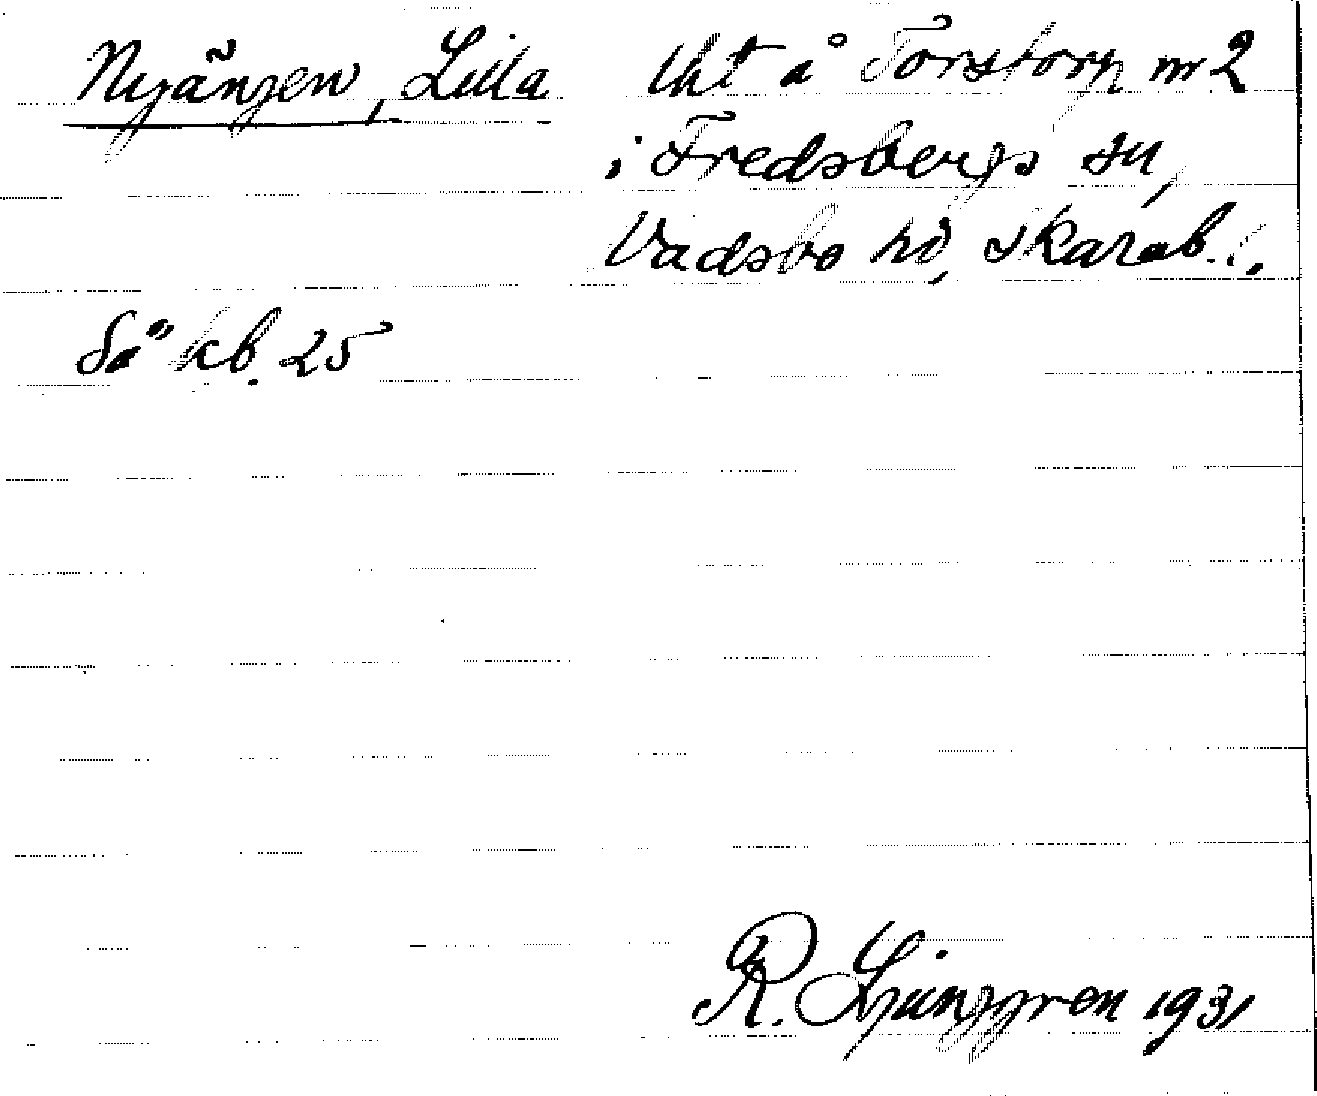 Nyängen, Lilla
Uht å Torstorp nr 2
i Fredsbergs sn,
Vadsbo hd, Skarab. l.
Så kb. 25
R. Ljunggren 1931